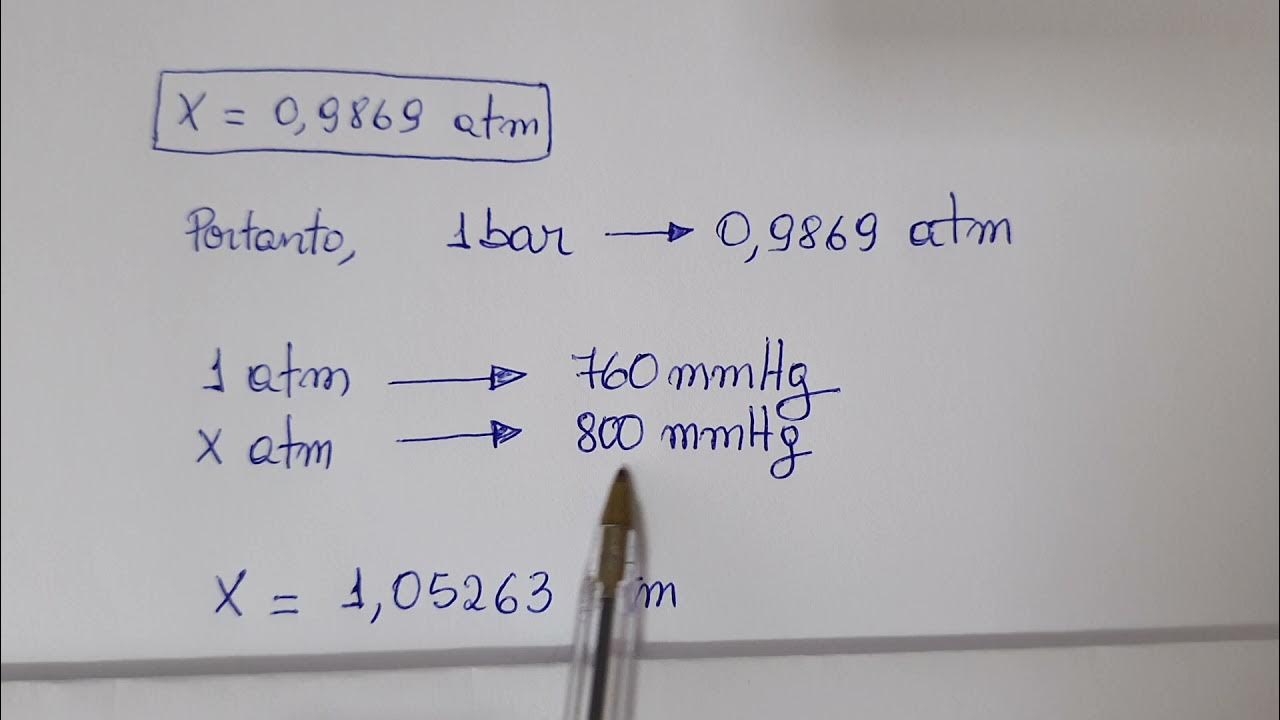 X = 0,9869 atm
Portanto, 1 bar → 0,9869 atm
1 atm → 760 mmHg
X atm → 800 mmHg
X = 1,05263